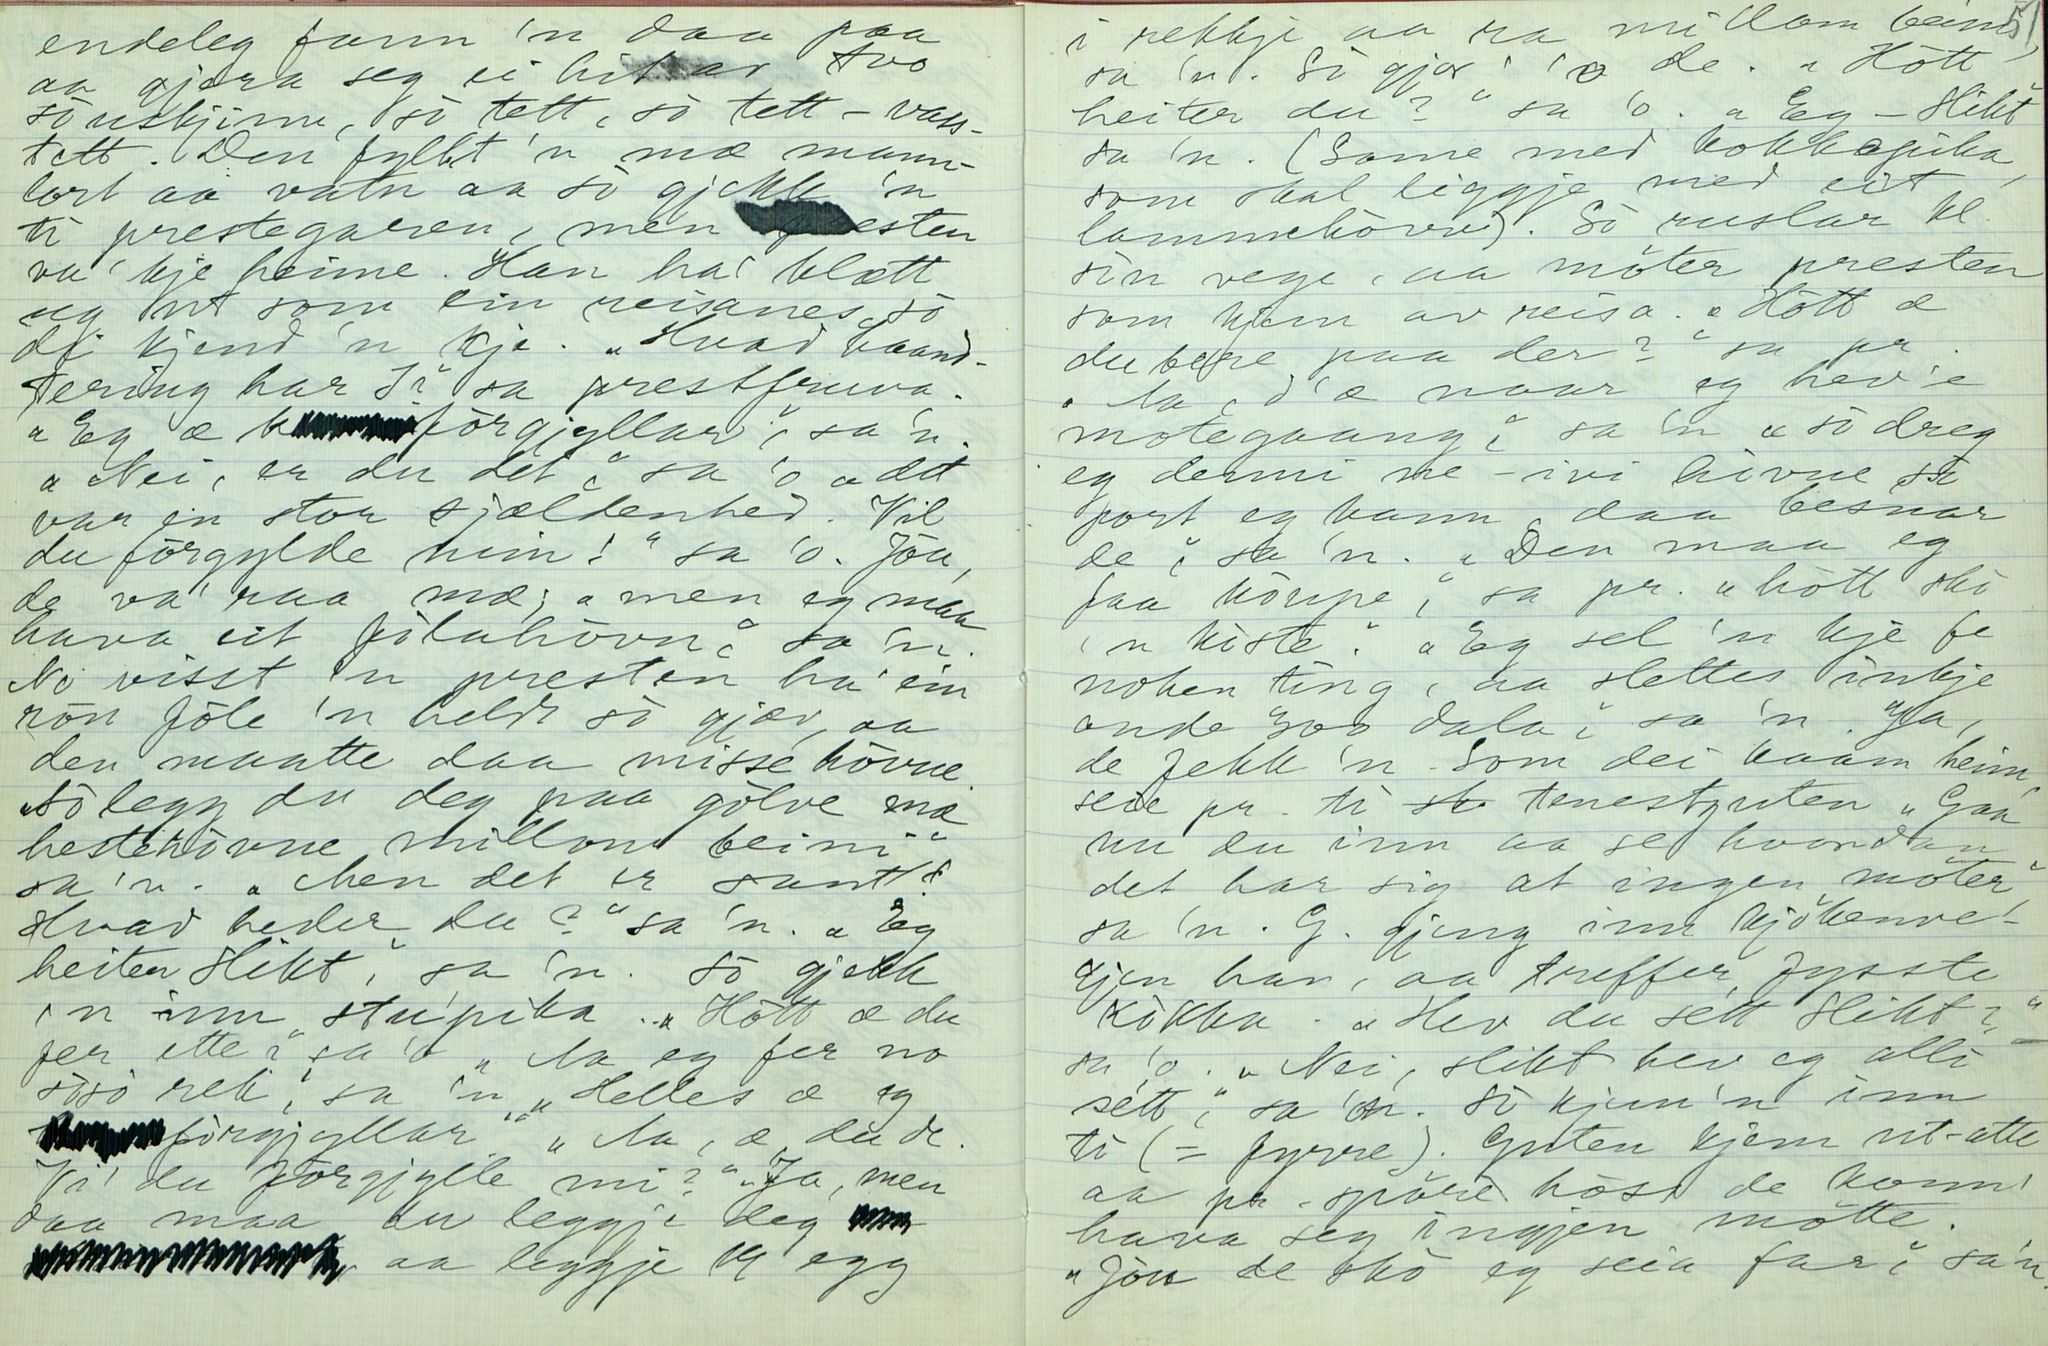 endeleg fann 'n daa paa
aa gjera seg ei hit av tvo
söuskjinn, sö tett, sö tett - vass-
tett. Den fyllt 'n mæ mann-
lort aa vatn aa sö gjekk 'n
ti prestegaren, men presten
va' kje heime. Han ha' klætt
seg ut som ein reisanes, sö
di kjend 'n kje. „Hvad haand-
tering har I?" sa prestfruva.
„Eg æ förgjyllar", sa 'n.
„Nei, er du det", sa 'o „det
var en stor sjældenhed. Vil
du förgylde min!" sa 'o. Jöu,
de va' raa mæ; „men eg maa
hava eit fölahövn", sa 'n.
No visst 'n presten ha' ein
rön föle 'n heldt sö gjæv, aa
den maatte daa misse hövne
„Sö legg du deg paa gölve mæ
hestehövne millom beini"
sa 'n. „Men det er sant!
Hvad heder du?" sa 'n. „Eg
heiter Slikt", sa 'n. Sö gjekk
'n inn stu'pika. „Hött æ du
fer ette?" sa 'o „Aa eg fer no
söso rek", sa 'n, „Helles æ eg
förgjyllar" „Aa, æ du de.
Vi' du förgjylle mi?" „Ja, men
daa maa du leggje deg
aa leggje 14 egg
51
i rekkje aa ra millom beini",
sa 'n. Sö gjor' 'o de. „Hött
heiter du?" sa 'o. „Eg - Slikt"
sa 'n. (Same med kokkepika,
som skal liggje med eit
lammehövn). Sö ruslar kl.
sin vege, aa möter presten
som kjem av reisa. „Hött æ
du bere paa der?" sa pr.
„Aa, d'æ naar eg hev'e
motegaang", sa 'n „sö dreg
eg dermi ne - ivi hivne so
fort eg kann, daa besnar
de", sa 'n. „Den maa eg
faa köupe", sa pr. „hött skö
'n kiste." „Eg sel 'n kje fe
noken ting, aa slettes inkje
onde 300 dala", sa 'n. Ja,
de fekk 'n. Som dei kaam heim,
seie pr. ti tenestguten „Gaa
nu du inn aa se hvordan
det har sig at ingen möter"
sa 'n. G. gjeng inn kjökenve-
gjen han, aa treffer fysste
kökka. „Hev du sett Slikt?"
sa 'o. „Nei, slikt hev eg alli
sett", sa 'n. Sö kjem 'n inn
ti (= fyrre). Guten kjem ut-atte
aa pr. spöre höss de konn'
hava seg ingjen mötte.
„Jöu de skö eg seia far", sa 'n.